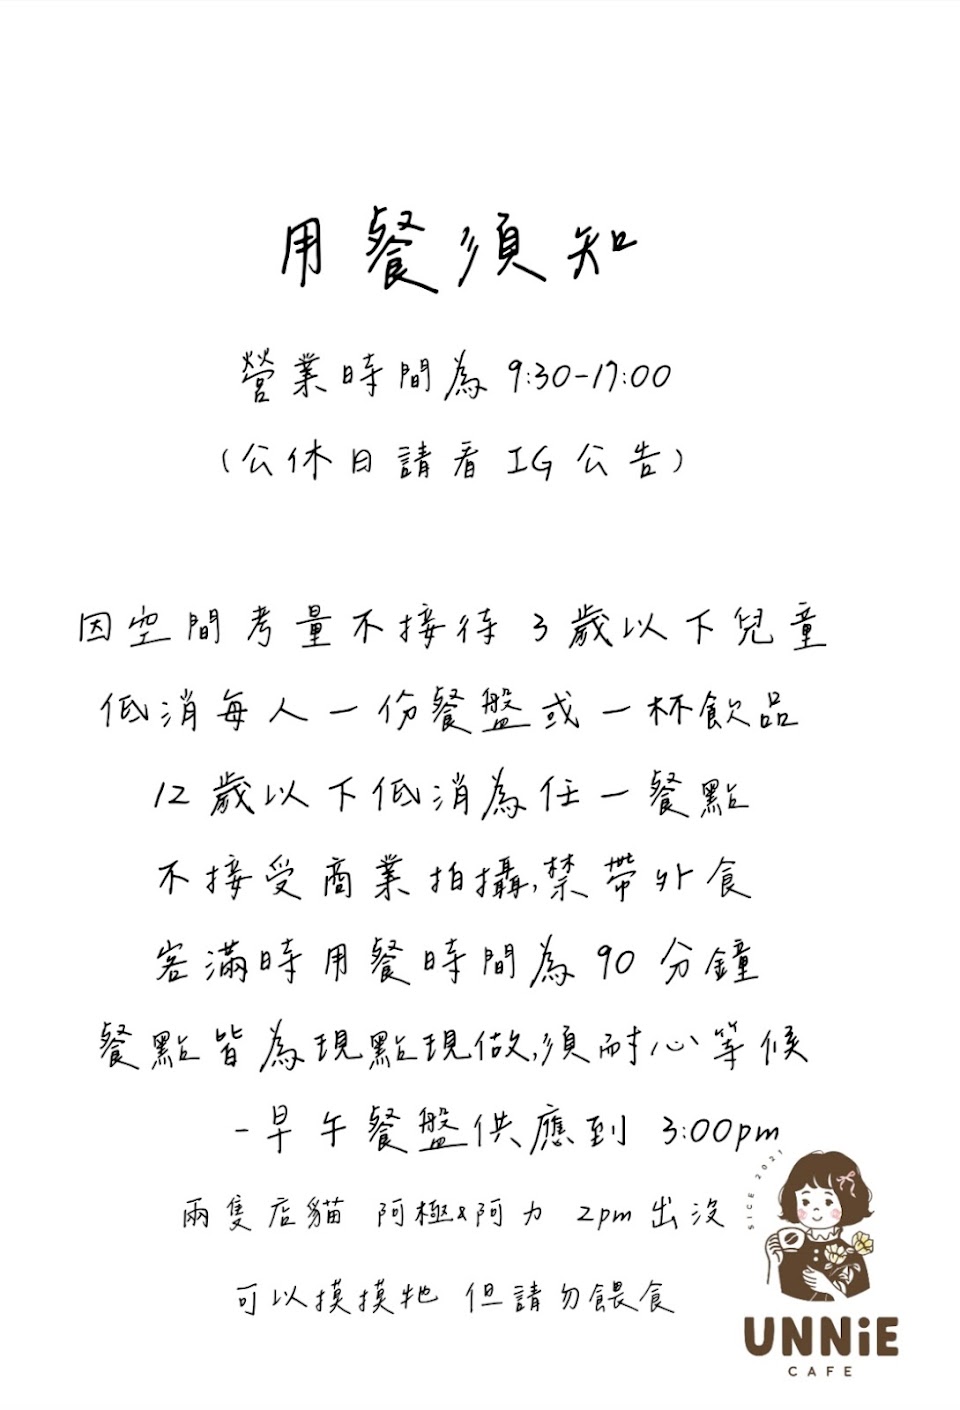 用餐須知
營業時間為 9:30-17:00
(公休日請看IG公告)
因空間考量不接待 3歲以下兒童
低消每人一份餐盤或一杯飲品
12歲以下低消為任一餐點
不接受商業拍攝,禁帶外食
客滿時用餐時間為 90 分鐘
餐點皆為現點現做,須耐心等候
-早午餐盤供應到 3:00pm
兩隻店貓 阿極&阿力 2pm出沒
可以摸摸牠 但請勿餵食
SICE 2021
UNNiE
CAFE